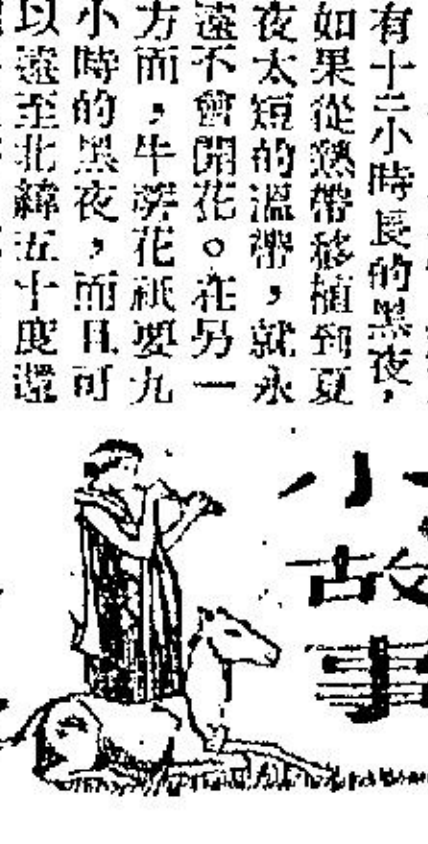 有十二小時長的黑夜，
如果從熱帶移植到夏
夜太短的溫帶，就永
遠不會開花。在另一
方面，牛蒡花祇要九
小時的黑夜，而且可
以遠至北緯五十度還
小故事